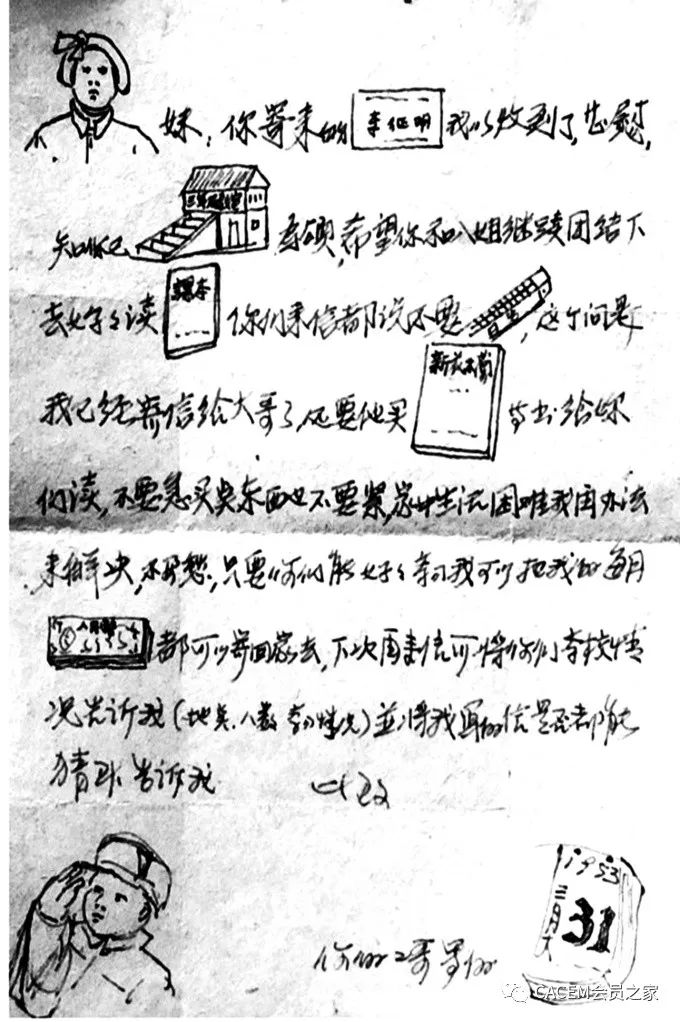 妹：你寄来的 李征明 我以收到了，甚慰，
知你已 考取，希望你和八姐继续团结下
去好々读 课本 你们来信都说不要，这个问题
我已经寄信给大哥了，还要他买 等书给你
们读，不要急买 东西也不要紧，家中生活困难我用办法
来解决，不用愁，只要你们能好々学习我可以把我的每月
都可以寄回家去，下次再来信可将你们学校情
况告诉我（地点、人数、学习情况）並将我写的信是否都能
猜到告诉我 此致
1953
三月大
31
你的二哥寄的
CACEM会员之家